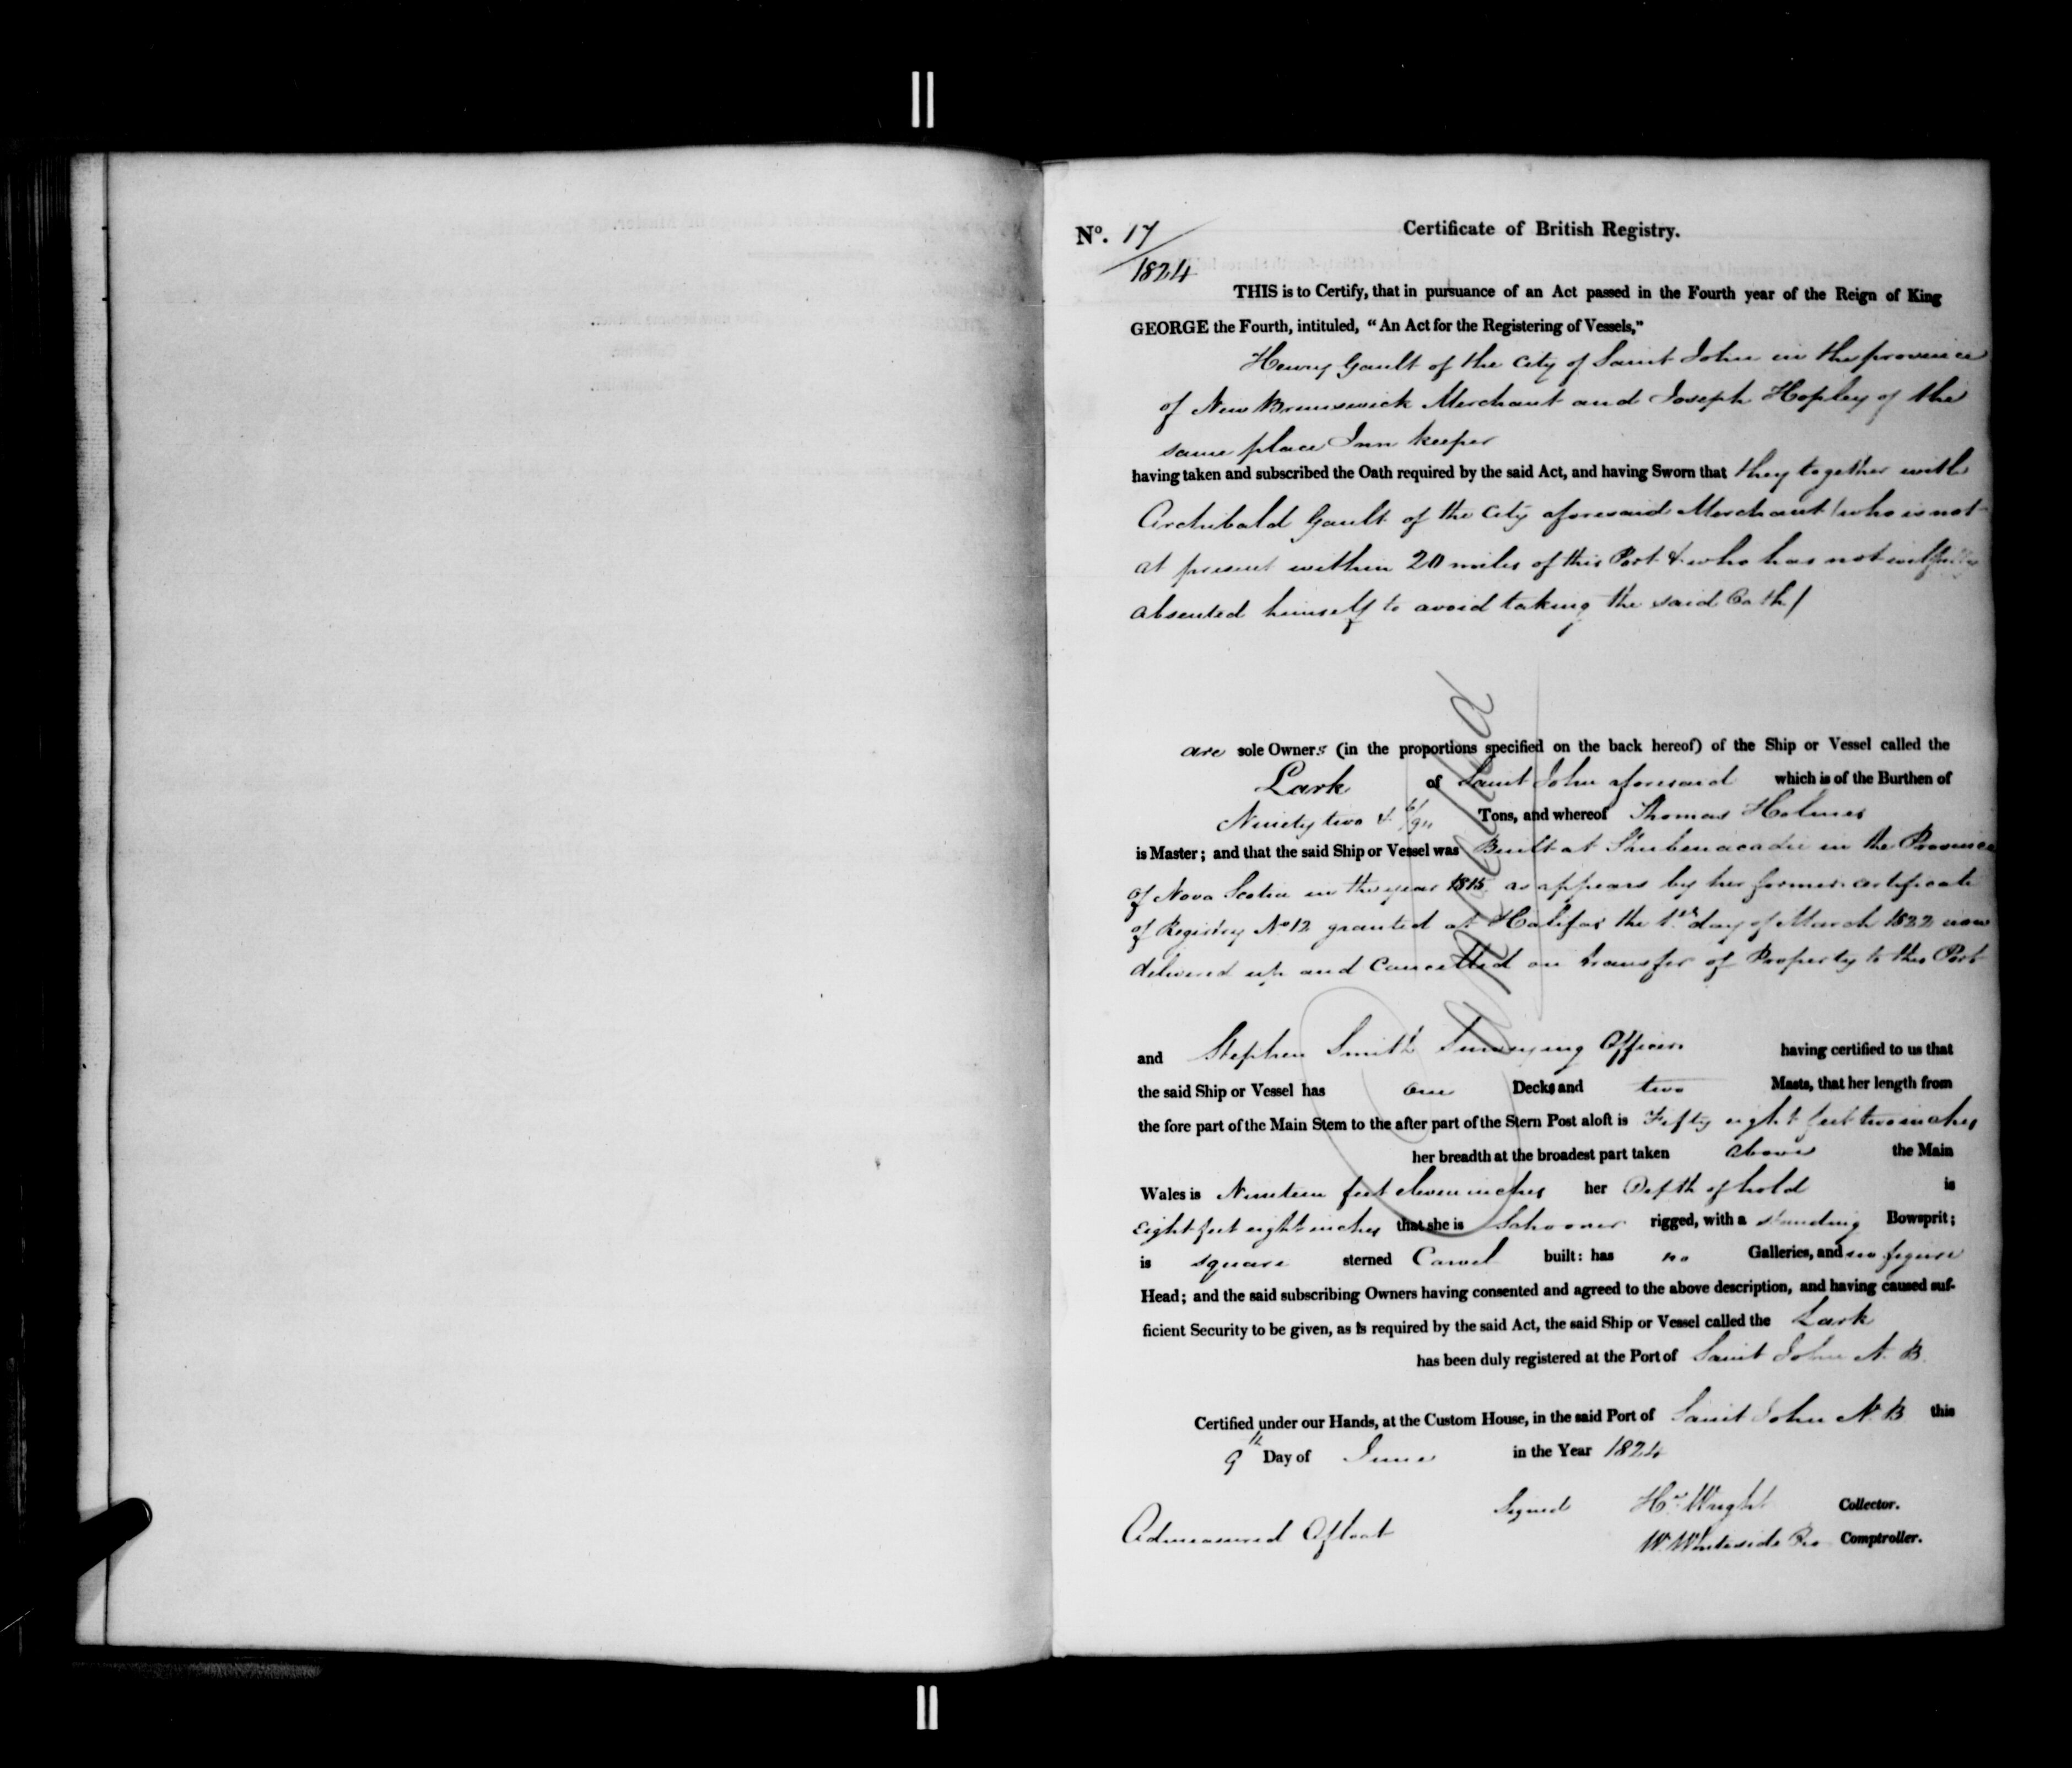 No. 17/1824
Certificate of British Registry.
THIS is to Certify, that in pursuance of an Act passed in the Fourth year of the Reign of King
GEORGE the Fourth, intituled, “An Act for the Registering of Vessels,”
Henry Gault of the City of Saint John in the province
of New Brunswick Merchant and Joseph Hopley of the
same place Inn keeper
having taken and subscribed the Oath required by the said Act, and having Sworn that they together with
Archibald Gault of the City aforesaid Merchant (who is not
at present within 20 miles of this Port & who has not wilfully
absented himself to avoid taking the said Oath)
are sole Owners (in the proportions specified on the back hereof) of the Ship or Vessel called the
Lark of Saint John aforesaid which is of the Burthen of
Ninety two & Tons, and whereof Thomas Holmes
is Master; and that the said Ship or Vessel was Built at Shubenacadie in the Province
of Nova Scotia in the year 1815 as appears by her former certificate
of Registry No 12 granted at Halifax the 1st day of March 1822 now
delivered up and Cancelled on transfer of Property to this Port
Cancelled
and Stephen Smith Surveying Officer having certified to us that
the said Ship or Vessel has one Decks and two Masts, that her length from
the fore part of the Main Stem to the after part of the Stern Post aloft is Fifty eight feet two inches
her breadth at the broadest part taken above the Main
Wales is Nineteen feet eleven inches her Depth of hold is
Eight feet eight inches that she is Schooner rigged, with a standing Bowsprit;
is square sterned Carvel built: has no Galleries, and no figure
Head; and the said subscribing Owners having consented and agreed to the above description, and having caused suf-
ficient Security to be given, as is required by the said Act, the said Ship or Vessel called the Lark
has been duly registered at the Port of Saint John N. B.
Certified under our Hands, at the Custom House, in the said Port of Saint John N. B this
9th Day of June in the Year 1824
Signed Hy. Wright Collector.
Admeasured Afloat
W. Whiteside Pro Comptroller.